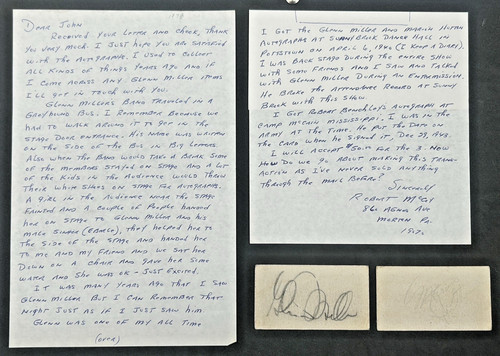 Dear John
Received your letter and check, thank
you very much. I just hope you are satisfied
with the autographs. I used to collect
all kinds of things years ago and if
I come across any Glenn Miller items
I'll get in touch with you.
Glenn Millers band traveled in a
Greyhound bus. I remember because we
had to walk around it to get in the
stage door entrance. His name was written
on the side of the bus in big letters.
Also when the band would take a break some
of the members stayed on stage and a lot
of the kids in the audience would throw
their white shoes on stage for autographs.
A girl in the audience near the stage
fainted and a couple of people handed
her on stage to Glenn Miller and his
male singer (Eberle), they helped her to
the side of the stage and handed her
to me and my friend and we sat her
down on a chair and gave her some
water and she was OK - just excited.
It was many years ago that I saw
Glenn Miller but I can remember that
night just as if I just saw him
Glenn was one of my all time
(over)
I got the Glenn Miller and Marion Hutton
autographs at Sunnybrook Dance Hall in
Pottstown on April 6, 1940 (I keep a diary).
I was back stage during the entire show
with some friends and I saw and talked
with Glenn Miller during an intermission.
He broke the attendance record at Sunny
Brook with this show.
I got Robert Benchleys autograph at
Camp McCain Mississippi. I was in the
Army at the time. He put the date on
the card when he signed it, Dec 29, 1943.
I will accept $50.00 for the 3. Now
how do we go about making this trans-
action as I've never sold anything
through the mail before?
Sincerely
Robert
Ave
Morton Pa.
Glenn Miller